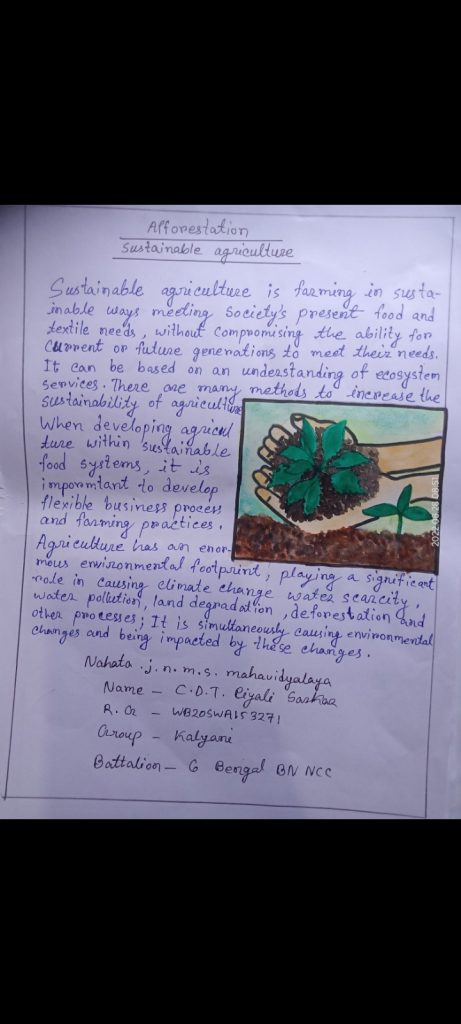 Afforestation
Sustainable agriculture
Sustainable agriculture is farming in susta-
inable ways meeting Society's present food and
textile needs, without compromising the ability for
current or future generations to meet their needs.
It can be based on an understanding of ecosystem
services. There are many methods to increase the
sustainability of agriculture
When developing agricul
ture within sustainable
food systems, it is
impormtant to develop
flexible business process
and farming practices.
Agriculture has an enor-
mous environmental footprint, playing a significant
role in causing climate change water scarcity,
water pollution, land degradation, deforestation and
other processes; It is simultaneously causing environmental
changes and being impacted by these changes.
Nahata .j.n.m.s. mahavidyalaya
Name - C.D.T. Piyali Sarkar
R.O - WB20SWA153271
Group - Kalyani
Battalion - 6 Bengal BN NCC
2022/06/28 08:51